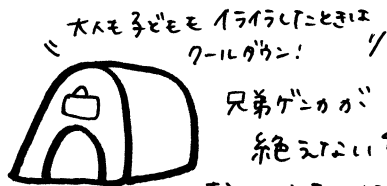 大人も子どもも イライラしたときは
クールダウン!
兄弟ゲンカが
絶えない